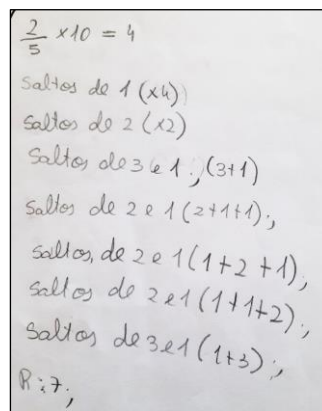 2/5 ×10 = 4
Saltos de 1 (×4)
Saltos de 2 (×2)
Saltos de 3 e 1:, (3+1)
Saltos de 2 e 1 (2+1+1);,
Saltos, de 2 e 1 (1+2+1),
Saltos de 2 e 1 (1+1+2);,
Saltos de 3 e 1 (1+3);,
R:7;,